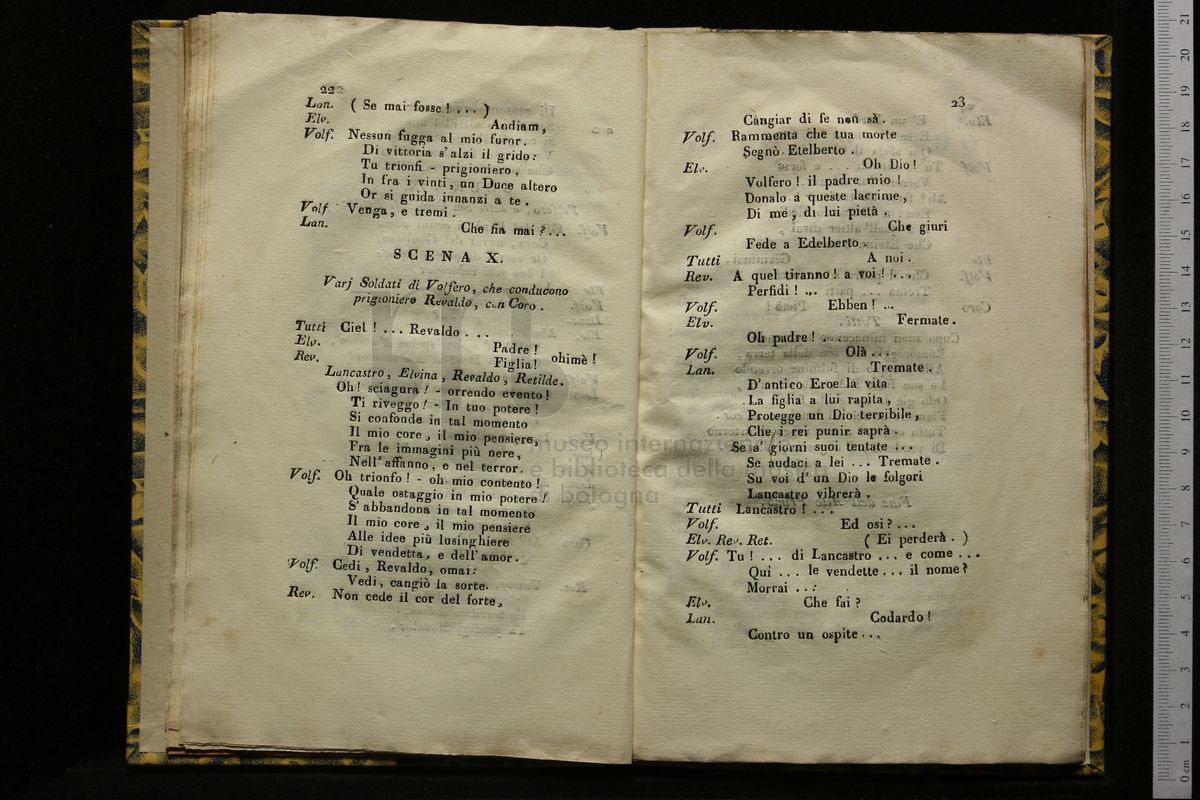 22
Lan. ( Se mai fosse ! . . . )
Elv. Andiam,
Volf. Nessun fugga al mio furor.
Di vittoria s'alzi il grido:
Tu trionfi - prigioniero,
In fra i vinti, un Duce altero
Or si guida innanzi a te .
Volf Venga, e tremi .
Lan. Che fia mai ? . . .
SCENA X.
Varj Soldati di Volfero, che conducono
prigioniero Revaldo, con Coro .
Tutti Ciel ! . . . Revaldo . . .
Elv. Padre !
Rev. Figlia! ohimè !
Lancastro, Elvina, Revaldo, Retilde.
Oh! sciagura ! - orrendo evento !
Ti riveggo ! - In tuo potere !
Si confonde in tal momento
Il mio core, il mio pensiere,
Fra le immagini più nere,
Nell' affanno, e nel terror.
Volf. Oh trionfo ! - oh mio contento !
Quale ostaggio in mio potere !
S' abbandona in tal momento
Il mio core, il mio pensiere
Alle idee più lusinghiere
Di vendetta, e dell' amor.
Volf. Cedi, Revaldo, omai:
Vedi, cangiò la sorte.
Rev. Non cede il cor del forte,
23
Cangiar di fe non sà .
Volf. Rammenta che tua morte
Segnò Etelberto .
Elv. Oh Dio !
Volfero ! il padre mio !
Donalo a queste lacrime,
Di me, di lui pietà .
Volf. Che giuri
Fede a Edelberto .
Tutti A noi .
Rev. A quel tiranno ! a voi ! . . .
Perfidi ! ...
Volf. Ebben ! ...
Elv. Fermate .
Oh padre ! . . .
Volf. Olà . . .
Lan. Tremate .
D'antico Eroe la vita
La figlia a lui rapita,
Protegge un Dio terribile,
Che i rei punir saprà .
Se a' giorni suoi tentate . . .
Se audaci a lei . . . Tremate .
Su voi d'un Dio le folgori
Lancastro vibrerà .
Tutti Lancastro ! . . .
Volf. Ed osi ? . . .
Elv. Rev. Ret. ( Ei perderà . )
Volf. Tu ! . . . di Lancastro . . . e come . . .
Qui . . . le vendette . . . il nome ?
Morrai . . .
Elv. Che fai ?
Lan. Codardo !
Contro un ospite . . .
museo internazionale
e biblioteca della musica
di bologna